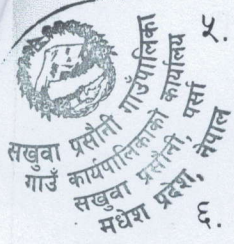 सखुवा प्रसौनी गाउँपालिका
गाउँ कार्यपालिकाको कार्यालय
सखुवा प्रसौनी, पर्सा
मधेश प्रदेश, नेपाल
५.
६.